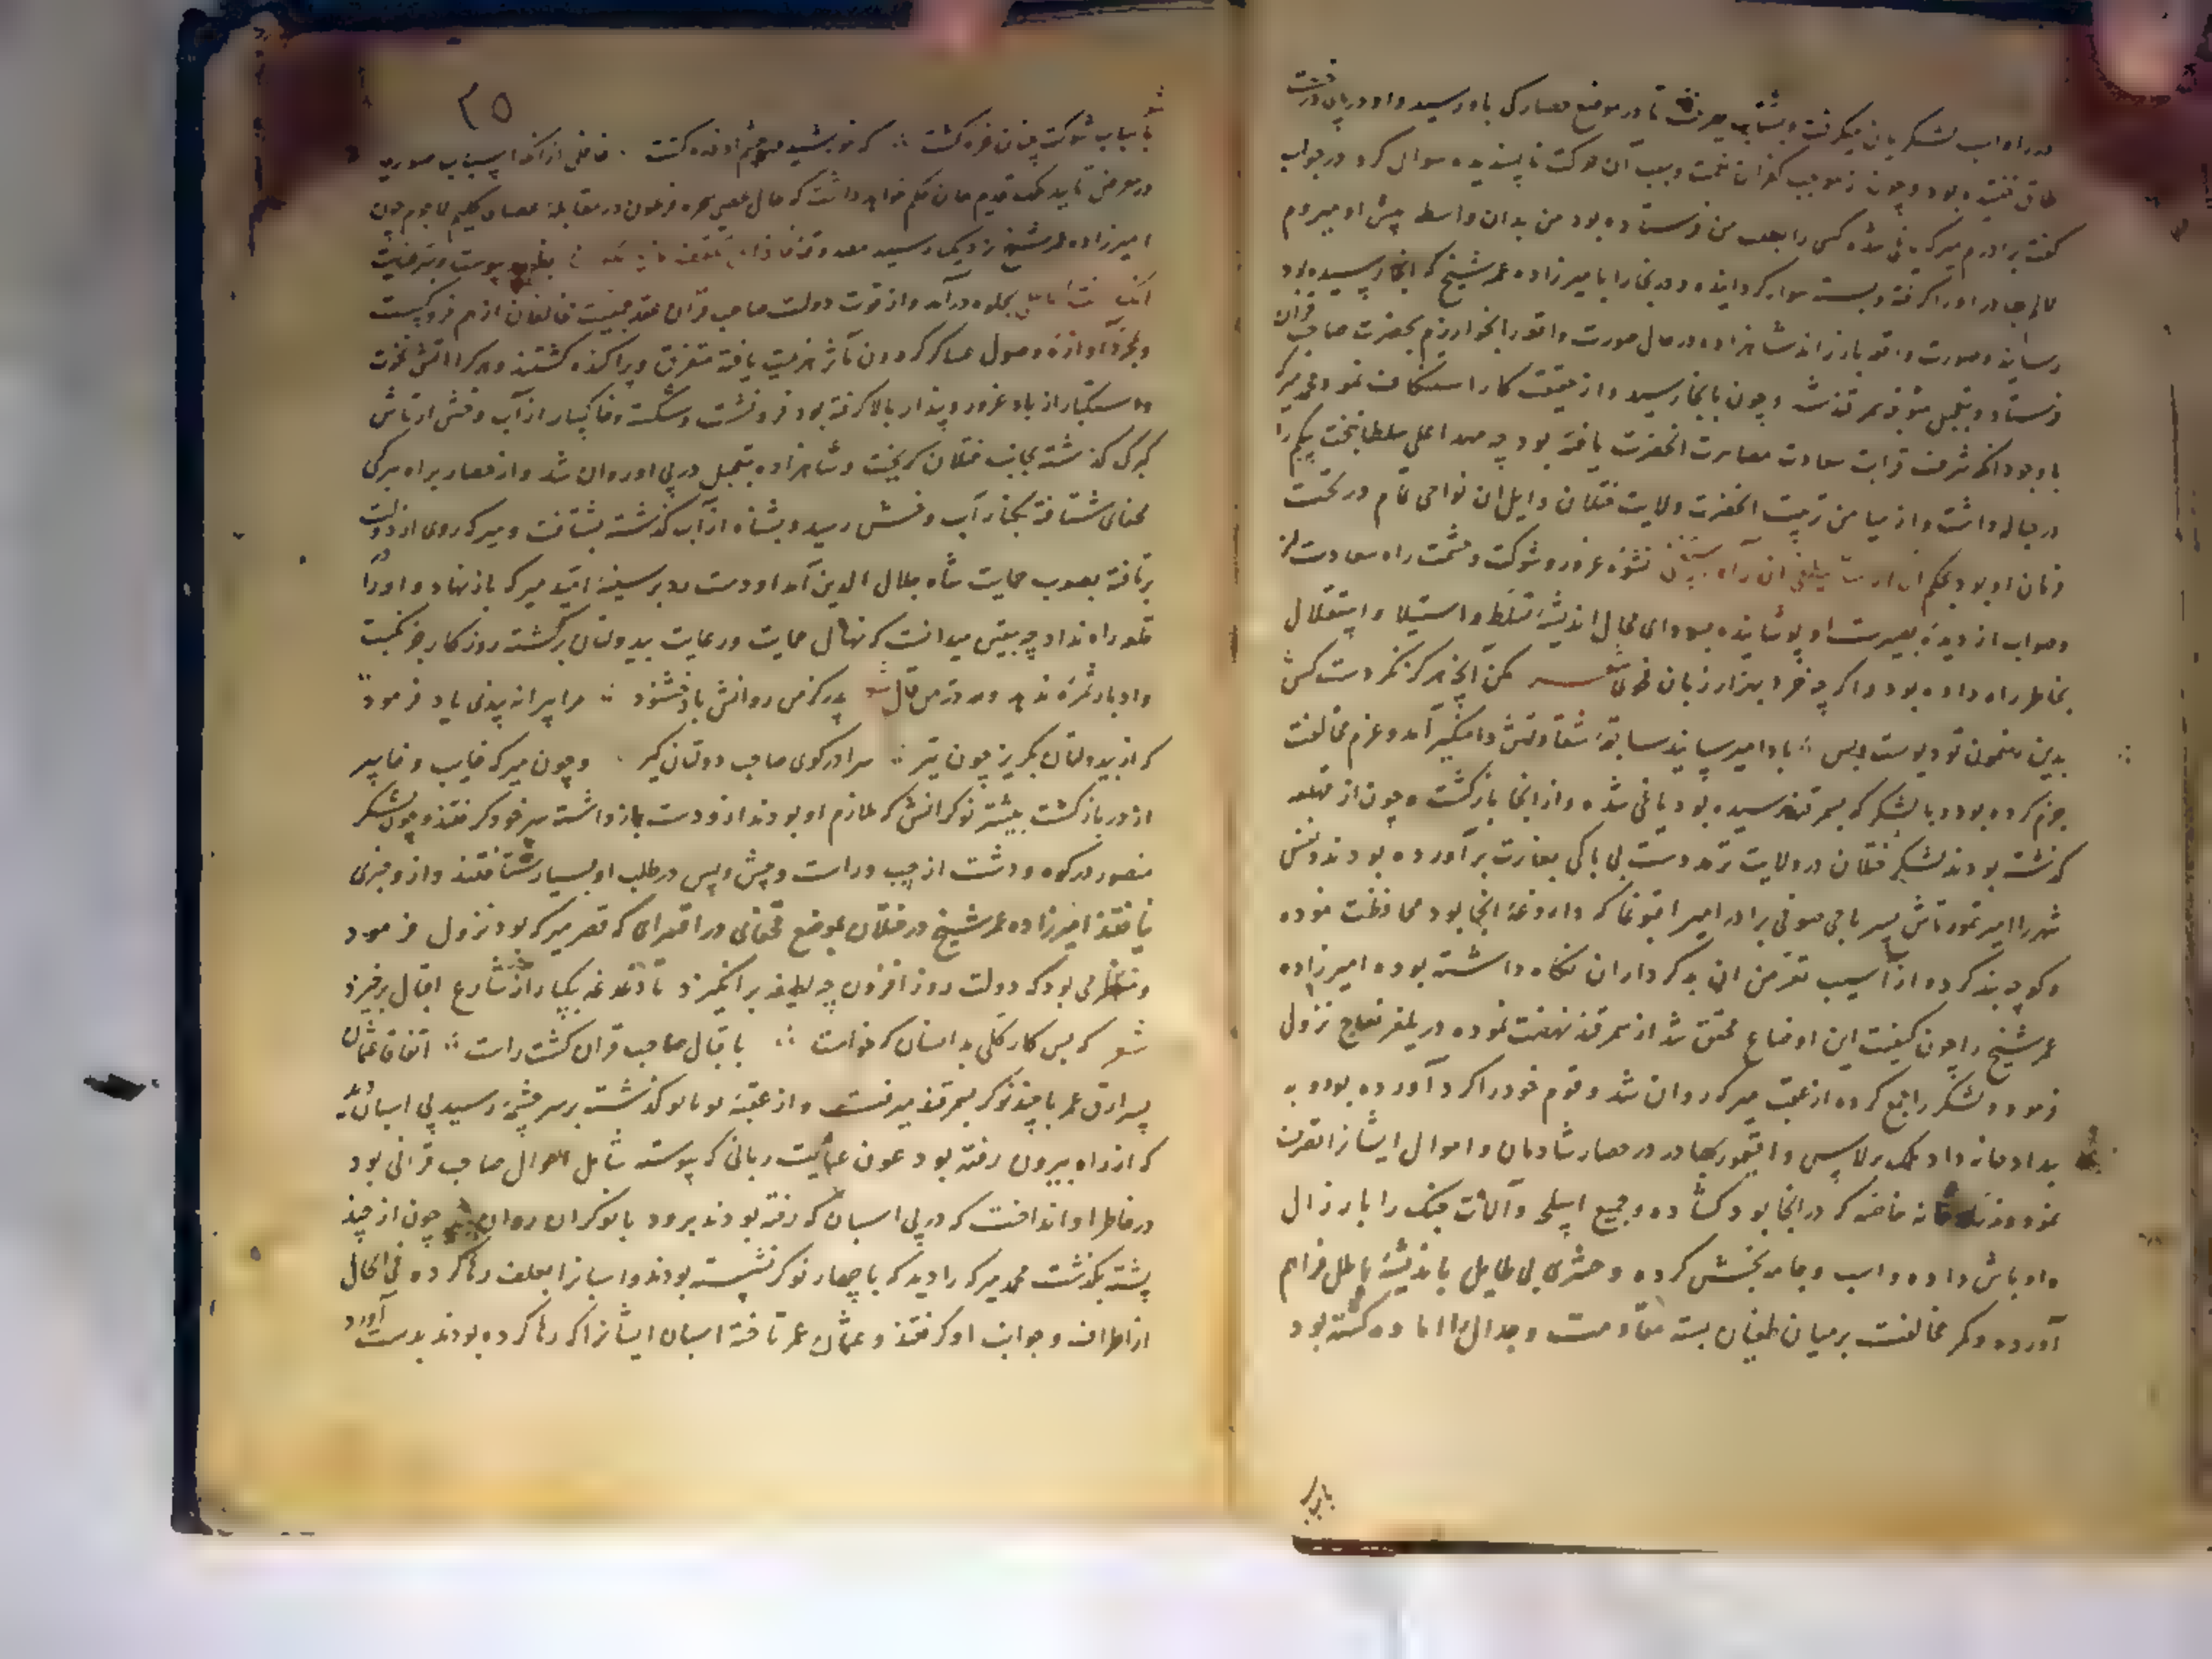 در راه اسب لشکریان میگرفت و بشتاب میرفت تا در موضع حصارکی باو رسید و او در پای درخت
طاق خفته بود و چون از موجب کفران نعمت و سبب آن حرکت ناپسندیده سوال کرد در جواب
گفت برادرم میرکه یاغی شده کسی را بطلب من فرستاده بود من بدان واسطه پیش او میروم
بهادر او را گرفته و بسته سوار گردانیده و در بخارا بامیرزاده عمر شیخ که آنجا رسیده بود
رسانید و صورت واقعه باز راند شاهزاده در حال صورت واقعه را بخوارزم بحضرت صاحب قران
فرستاد و بتعجیل متوجه سمرقند شد و چون بآنجا رسید و از حقیقت کار استکشاف نمود محمد میرکه
با وجود آنکه شرف قرابت سعادت مصاهرت آنحضرت یافته بود چه مهد اعلی سلطان بخت بیگم را
در حباله داشت و از میامن تربیت آنحضرت ولایت ختلان و ایل آن نواحی تمام در تحت
فرمان او بود بحکم ان الانسان لیطغی ان رآه استغنی نشوه غرور و شوکت و حشمت راه سعادت از
و صواب از دیده بصیرت او پوشانیده سودای محال اندیشه تسلط و استیلا و استقلال
بخاطر راه داده بود و اگر چه خرد بهزار زبان شعر مکن آنچه هرگز نکردست کس
بدین مضمون تو دیوست و بس ∴ با او میرسانید سابقه شقاوتش دامنگیر آمد و عزم مخالفت
جزم کرده بود و با لشکر که بسمرقند رسیده بود یاغی شده و از آنجا بازگشت و چون از قهلغه
گذشته بودند لشکر ختلان در ولایت ترمد دست بی باکی بغارت برآورده بودند و نفس
شهر را امیر تمور تاش پسر باجی صوفی برادر امیر اقبوغا که داروغه آنجا بود محافظت نموده
و کوچه بند کرده از آسیب تعرض آن بد کرداران نگاه داشته بود و امیرزاده
عمر شیخ را چون کیفیت این اوضاع محقق شد از سمرقند نهضت نموده در نزول
فرمود و لشکر را جمع کرده از عقب میرکه روان شد و قوم خود را گرد آورده بود و به
ملک برلاس و ایتمور بهادر در حصار شادمان و اموال ایشان را تصرف
نموده و خاصه که در آنجا بود گشاده و جمیع اسلحه و آلات جنگ را بارزال
و اوباش داده و اسب و جامه بخشش کرده و حشری بی طایل باندیشه باطل فراهم
آورده و کمر مخالفت بر میان طغیان بسته مقاومت و جدال را آماده گشته بود
بارباب
۲۵
شعر
باسباب شوکت چنان غره گشت ∴ که خورشید در چشم او ذره گشت ∴ غافل از آنکه اسباب صوری
در معرض تایید ملک قدیم همان حکم خواهد داشت که حال عصی سحره فرعون در مقابله عصای کلیم لاجرم چون
امیرزاده عمر شیخ نزدیک رسید بظهور پیوست و
بجلوه درآمد و از قوت دولت صاحب قران عقد جمعیت مخالفان از هم فرو گسست
و بمجرد آوازه وصول عساکر گردون مآثر هزیمت یافته متفرق و پراکنده گشتند و میرکه را آتش نخوت
و استکبار از باد غرور و پندار بالا گرفته بود فرو نشست و شکسته و خاکسار از آب وخش از تاش
کپرک گذشته بجانب ختلان گریخت و شاهزاده بتعجیل در پی او روان شد و از حصار براه
شتافته بکنار آب وخش رسید و بشناه از آب گذشته بشتافت و میرکه روی از دولت
برتافته بصوب حمایت شاه جلال الدین آمد او دست رد بر سینه امید میرکه باز نهاد و او را در
قلعه راه نداد چه بیقین میدانست که نهال حمایت و رعایت بیدولتان برگشته روزگار جز نکبت
و ادبار ثمره ندهد و من قال شعر پدر کز من روانش باد خشنود ∴ مرا پیرانه پندی یاد فرمود ∴
که از بیدولتان بگریز چون تیر ∴ سرا در کوی صاحب دولتان گیر ∴ و چون میرکه خایب و خاسر
از در بازگشت بیشتر نوکرانش که ملازم او بودند از و دست باز داشته سر خود گرفتند و چون لشکر
منصور در کوه و دشت از چپ و راست و پیش و پس در طلب او بسیار شتافتند و از و خبری
نیافتند امیرزاده عمر شیخ در ختلان بموضع در اقسرای که قصر میرکه بود نزول فرمود
و منتظر می بود که دولت روز افزون چه لطیفه برانگیزد تا دغدغه بیکبار از شارع اقبال برخیزد
شعر که بس کار کلی بدانسان که خواست ∴ باقبال صاحب قران گشت راست ∴ اتفاقا عثمان
پسر ارق عمر با چند نوکر بسمرقند میرفتند و از عقبه گذشته بر سر چشمه رسید پی اسبان دید
که از راه بیرون رفته بود عون عنایت ربانی که پیوسته شامل احوال صاحب قرانی بود
در خاطر او انداخت که در پی اسبان که رفته بودند برود با نوکران روان شد چون از چند
پشته بگذشت محمد میرکه را دید که با چهار نوکر نشسته بودند و اسبان را بعلف رها کرده فی الحال
از اطراف و جوانب او گرفتند و عثمان عمر تاخته اسبان ایشان را که رها کرده بودند بدست آورد